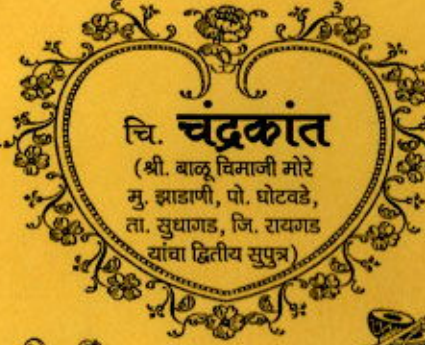 चि. चंद्रकांत
(श्री. बाळू चिमाजी मोरे
मु. झाडाणी, पो. घोटवडे,
ता. सुधागड, जि. रायगड
यांचा द्वितीय सुपुत्र)